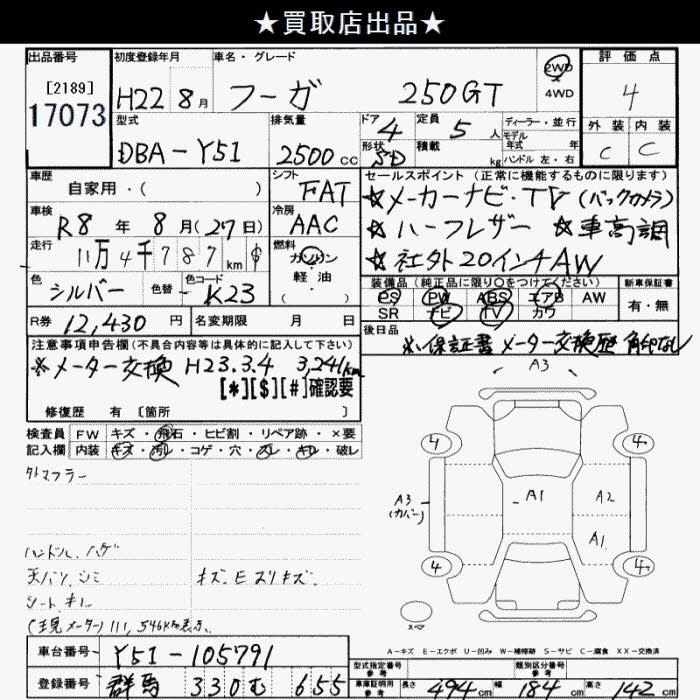 ★買取店出品★
出品番号 初度登録年月 車名・グレード 評価点
[2189] H22 8月 フーガ 250GT 2WD 4
17073 4WD
型式 排気量 ドア 定員 ディーラー・並行 外装 内装
DBA-Y51 2500cc 4 5人 モデル年式 年 C C
形状 積載 kg ハンドル 左・右
SD
車歴 シフト セールスポイント(正常に機能するものに限ります)
自家用・( ) FAT ☆メーカーナビ・TV(バックカメラ)
車検 冷房 ☆ハーフレザー ☆車高調
R8年8月(27日) AAC ☆社外20インチAW
走行 燃料
11万4千787km $ ガソリン
色 色替 色コード 軽・油
シルバー K23 ・( )
装備品(純正品に限り○をつけてください) 新車保証書
PS PW ABS エアB AW 有・無
SR ナビ TV カワ
R券 12,430円 名変期限 月 日
後日品 ※保証書 メーター交換歴 角印なし
注意事項申告欄(不具合内容等は具体的に記入して下さい)
※メーター交換 H23.3.4 3,241km
[*][$][#]確認要
修復歴 有 [箇所 ]
検査員 FW キズ・飛石・ヒビ割・リペア跡・×要
記入欄 内装 キズ・汚レ・コゲ・穴・スレ・キレ・破レ
外マフラー
ハンドル ハゲ
天バリ シミ キズ.Eスリキズ.
シート キレ
(現メーター)111,546km表示.
A3
4 4
A3 A1 A2
(カバー)
A1
4 4
スペア
A-キズ E-エクボ U-凹み W-補修跡 S-サビ C-腐食 XX-交換済
車台番号 Y51-105791
型式指定番号 参考 類別区分番号 参考
登録番号 群馬 330 む 655
車庫証明用 参考 長さ 494cm 幅 184cm 高さ 142cm